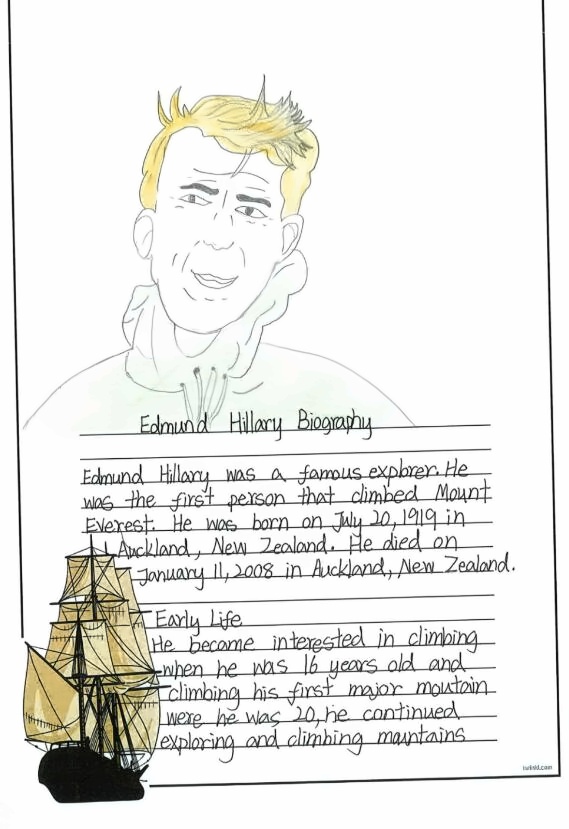 Edmund Hillary Biography
Edmund Hillary was a famous explorer. He
was the first person that climbed Mount
Everest. He was born on July 20, 1919 in
Auckland, New Zealand. He died on
January 11, 2008 in Auckland, New Zealand.
Early Life
He became interested in climbing
when he was 16 years old and
climbing his first major moutain
were he was 20, he continued
exploring and climbing mauntains
twinkl.com